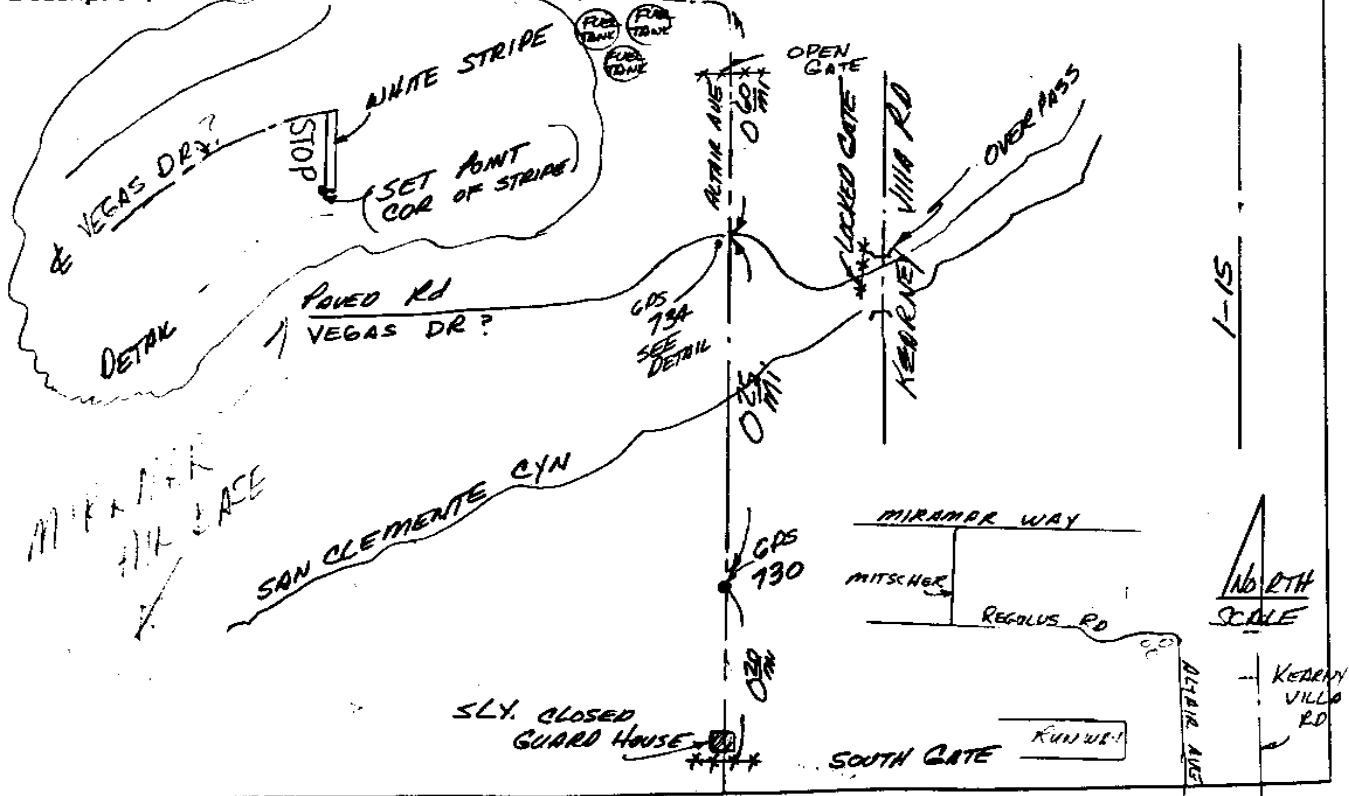 FUEL
TANK
FUEL
TANK
FUEL
TANK
WHITE STRIPE
STOP
SET POINT
COR OF STRIPE
& VEGAS DR ?
DETAIL
OPEN
GATE
ALTAIR AVE
0.60
MI
LOCKED GATE
KEARNEY VILLA RD
OVERPASS
I-15
PAVED Rd
VEGAS DR ?
GPS
73A
SEE
DETAIL
0.25
MI
MIRAMAR
AIR BASE
SAN CLEMENTE CYN
GPS
730
MIRAMAR WAY
MITSCHER
REGULUS RD
NORTH
SCALE
0.20
MI
SLY. CLOSED
GUARD HOUSE
SOUTH GATE
RUNWAY
ALTAIR AVE
KEARNY
VILLA
RD